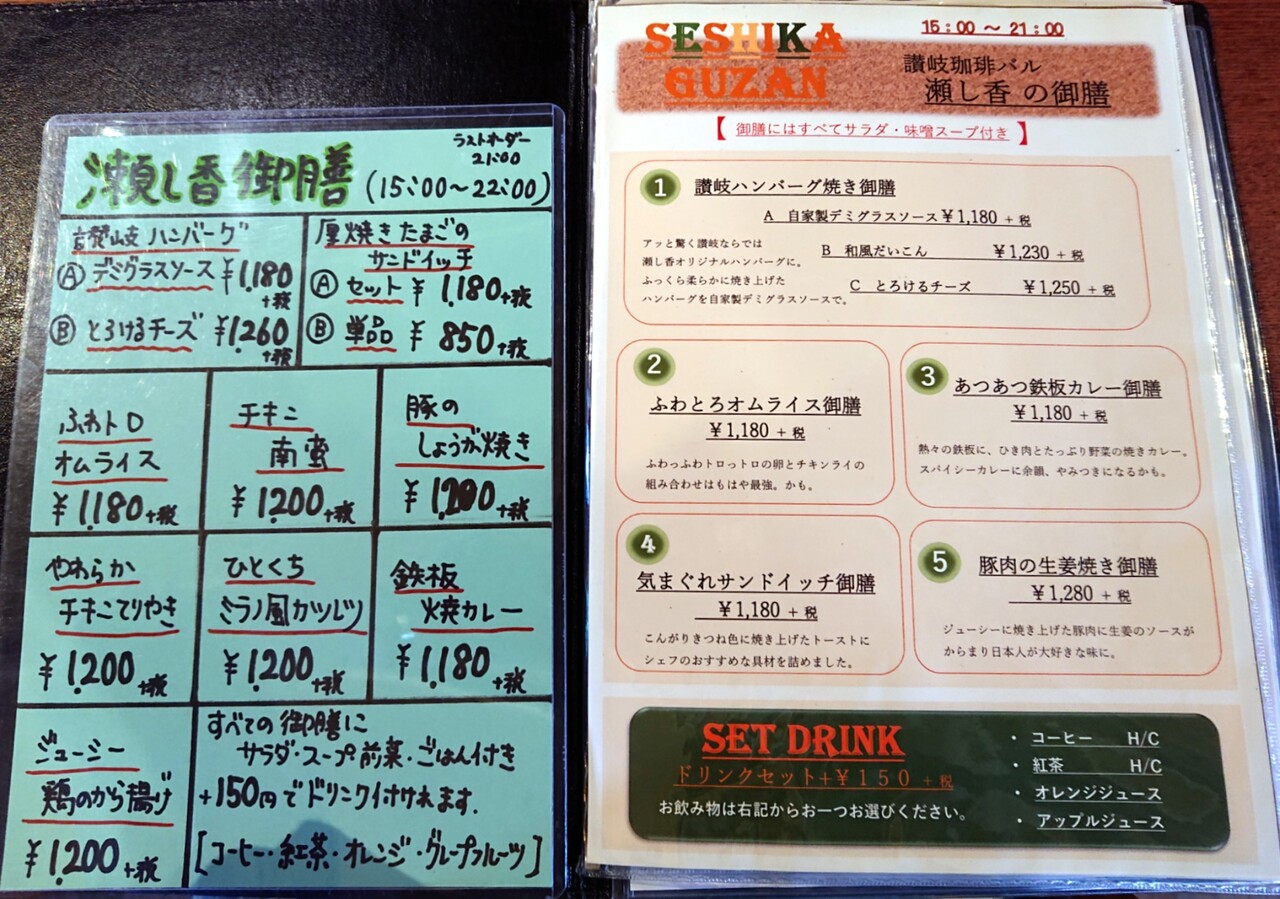 ラストオーダー
21:00
瀬し香御膳 (15:00～22:00)
讃岐ハンバーグ
Ⓐ デミグラスソース ¥1,180
+税
Ⓑ とろけるチーズ ¥1,260
+税
厚焼きたまごの
サンドイッチ
Ⓐ セット ¥1,180+税
Ⓑ 単品 ¥850+税
ふわトロ
オムライス
¥1,180+税
チキン
南蛮
¥1,200+税
豚の
しょうが焼き
¥1,200+税
やわらか
チキンてりやき
¥1,200+税
ひとくち
ミラノ風カツレツ
¥1,200+税
鉄板
焼カレー
¥1,180+税
ジューシー
鶏のから揚げ
¥1,200+税
すべての御膳に
サラダ・スープ前菜・ごはん付き
+150円でドリンク付けれます.
[コーヒー・紅茶・オレンジ・グレープフルーツ]
SESHIKA
GUZAN
15:00 ～ 21:00
讃岐珈琲バル
瀬し香 の御膳
【 御膳にはすべてサラダ・味噌スープ付き 】
1 讃岐ハンバーグ焼き御膳
A 自家製デミグラスソース¥1,180 + 税
B 和風だいこん ¥1,230 + 税
C とろけるチーズ ¥1,250 + 税
アッと驚く讃岐ならでは
瀬し香オリジナルハンバーグに。
ふっくら柔らかに焼き上げた
ハンバーグを自家製デミグラスソースで。
2
ふわとろオムライス御膳
¥1,180 + 税
ふわっふわトロっトロの卵とチキンライの
組み合わせはもはや最強。かも。
3
あつあつ鉄板カレー御膳
¥1,180 + 税
熱々の鉄板に、ひき肉とたっぷり野菜の焼きカレー。
スパイシーカレーに余韻、やみつきになるかも。
4
気まぐれサンドイッチ御膳
¥1,180 + 税
こんがりきつね色に焼き上げたトーストに
シェフのおすすめな具材を詰めました。
5
豚肉の生姜焼き御膳
¥1,280 + 税
ジューシーに焼き上げた豚肉に生姜のソースが
からまり日本人が大好きな味に。
SET DRINK
ドリンクセット+¥150 + 税
お飲み物は右記からお一つお選びください。
・ コーヒー H/C
・ 紅茶 H/C
・ オレンジジュース
・ アップルジュース